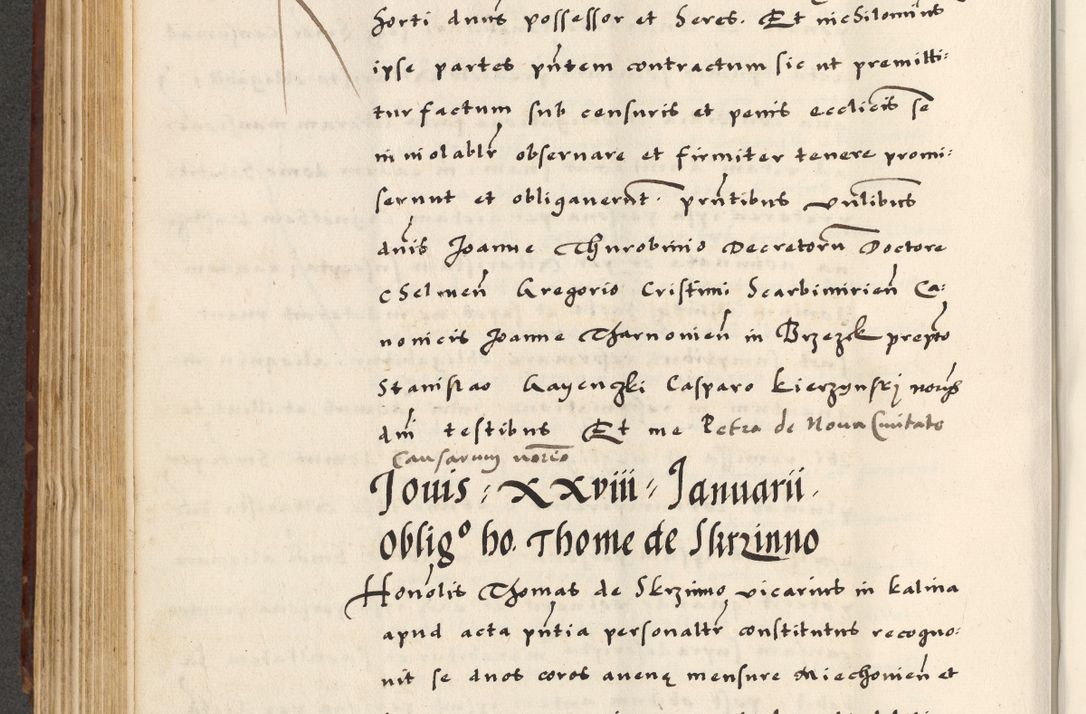 horti dnus possessor et heres. Et nichilominus
ipse partes pñtem contractum sic ut premitti-
tur factum sub censuris et penis ecclicis se
inviolablr observare et firmiter tenere promi-
serunt et obligaverũt. prñtibus vñlibus
dñis Joanne Thurobinio Decretorũ Doctore
Chelmeñ Gregorio Cristinni Scarbimirieñ Ca-
nonicis Joanne Tharnonieñ in Brzezik prepto
Stanislao Gayenczki Casparo Kierzynskj
dni testibus Et me Petro de Nova Civitate
Causarum norio
Jouis : XXviii : Januarii .
obligo ho. Thome de Skrzinno
Honolis Thomas de Skrzinno vicarius in Kalina
apud acta pñtia personaltr constitutus recogno-
vit se duos coros avenę mensure Miechovieñ et